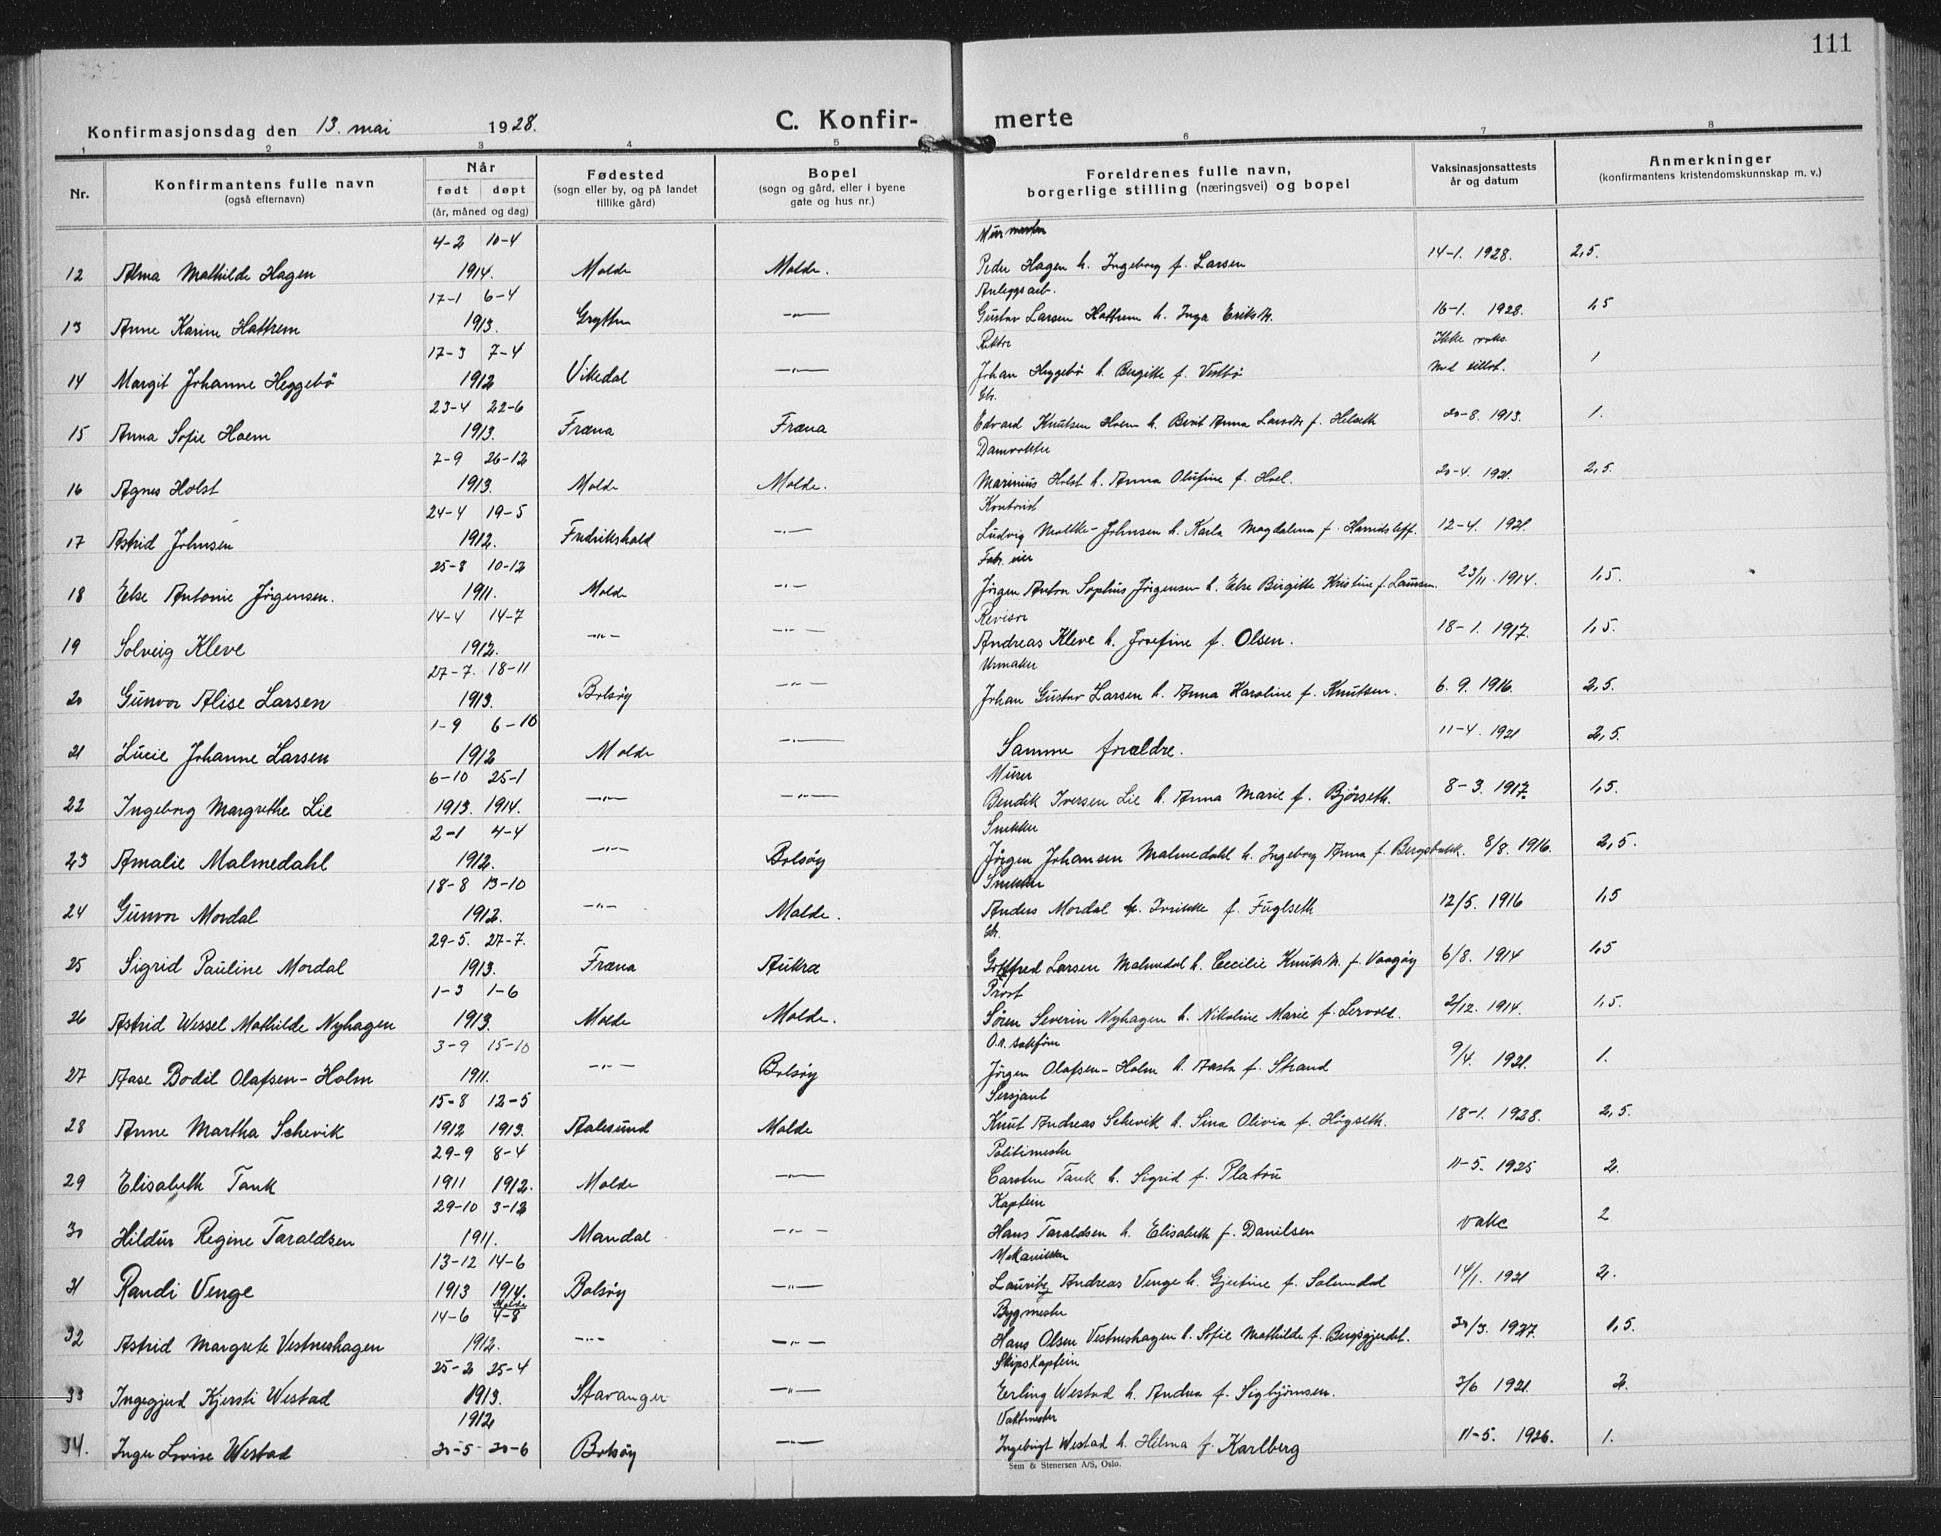 111
Konfirmasjonsdag den 13. mai 1928.
C. Konfirmerte
1 2 3 4 5 6 7 8
Nr. Konfirmantens fulle navn (også efternavn) Når født døpt (år, måned og dag) Fødested (sogn eller by, og på landet tillike gård) Bopel (sogn og gård, eller i byene gate og hus nr.) Foreldrenes fulle navn, borgerlige stilling (næringsvei) og bopel Vaksinasjonsattests år og datum Anmerkninger (konfirmantens kristendomskunnskap m. v.)
4-2 10-4 Murmester
12 Alma Mathilde Hagen 1914. Molde Molde. Peder Hagen h. Ingeborg f. Larsen 14-1. 1928. 2,5.
17-1 6-4 Anleggsarb.
13 Anne Karine Hattrem 1913. Grytten -"- Gustav Larsen Hattrem h. Inga 16-1. 1928. 1,5
17-3 7-4 Rektor Ikke vaks.
14 Margit Johanne Heggebö 1912 Vikedal -"- Johan Heggebö h. Bergitte f. Vestbö med tillat. 1
23-4 22-6 Gbr.
15 Anna Sofie Hoem 1913. Fræna Fræna Edvard Knutsen Hoem h. Berit Anna Larsdtr f. Hilseth 20-8. 1913. 1.
7-9 26-12
16 Agnes Holst 1913. Molde Molde. Marinius Holst h. Anna Olufine f. Hoel. 20-4. 1921. 2,5.
24-4 19-5 Kontorist
17 Astrid Johnsen 1912. Fredrikshald -"- Ludvig Moltke-Johnsen h. Karla Magdalena f. 12-4. 1921
25-8 10-12 Fabr. eier
18 Else Antonie Jörgensen. 1911. Molde -"- Jörgen Anton Sophus Jörgensen h. Else Birgitte Kristine f. Laursen. 23/11. 1914. 1,5.
14-4 14-7 Revisor
19 Solveig Kleve 1912. -"- -"- Andreas Kleve h. Josefine f. Olsen. 18-1. 1917. 1,5.
27-7. 18-11 Urmaker
20 Gunvor Alise Larsen 1913. Bolsöy -"- Johan Gustav Larsen h. Anna Karoline f. Knutsen. 6. 9. 1916. 2,5.
1-9 6-10
21 Lucie Johanne Larsen 1912 Molde -"- Samme forældre. 11-4. 1921 2,5.
6-10 25-1 Murer
22 Ingeborg Margrethe Lie 1913. 1914. -"- -"- Bendik Iversen Lie h. Anna Marie f. Björseth. 8-3. 1917. 1,5.
2-1 4-4 Snekker
23 Amalie Malmedahl 1912. -"- Bolsöy Jörgen Johansen Malmedahl h. Ingeborg Anna f. Bergsbakk. 8/8. 1916. 2,5.
18-8 13-10 Snekker
24 Gunvor Mordal 1912. -"- Molde. Anders Mordal h. f. Fuglseth 12/5. 1916 1,5
29-5. 27-7. Gbr.
25 Sigrid Pauline Mordal 1913. Fræna Aukra Gottfred Larsen Malmedal h. Cecilie f. Vaagöy 6/8. 1914 1,5
1-3 1-6 Prost
26 Astrid Wessel Mathilde Nyhagen 1913. Molde Molde. Sören Severin Nyhagen h. Nikoline Marie f. Lervold. 2/12. 1914. 1,5.
3-9 15-10 O.r. sakförer
27 Aase Bodil Olafsen-Holm 1911. -"- Bolsöy Jörgen Olafsen-Holm h. Aasta f. Strand 9/4. 1921. 1.
15-8 12-5 Sersjant
28 Anne Martha Schevik 1912 1913. Aalesund Molde Knut Andreas Schevik h. Sina Olivia f. Högseth. 18-1. 1928. 2,5.
29-9 8-4 Politimester
29 Elisabeth Tank 1911 1912. Molde -"- Carsten Tank h. Sigrid f. Platou 11-5. 1925 2
29-10 3-12 Kaptein
30 Hildur Regine Taraldsen 1911. Mandal -"- Hans Taraldsen h. Elisabeth f. Danilsen 2
13-12 14-6 Mekaniker
31 Randi Venge 1913 1914. Bolsöy -"- Lauritz Andreas Venge h. Gjertine f. 14/1. 1921 2.
14-6 Molde 4-8 Bygmester
32 Astrid Margrete Vestneshagen 1912. -"- -"- Hans Olsen Vestneshagen h. Sofie Mathilde f. Bergsgjerdet. 30/3. 1927. 1,5.
25-2 25-4 Skipskaptein
33 Ingegjerd Kjersti Westad 1913. Stavanger -"- Erling Westad h. Andrea f. Sigbjörnsen. 3/6 1921. 2.
1912 Vaktmester
34. Inger Lovise Westad 20-5 20-6 Bolsöy -"- Ingebrigt Westad h. Hilma f. Karlberg 11-5. 1926. 1.
Sem & Stenersen A/S, Oslo.